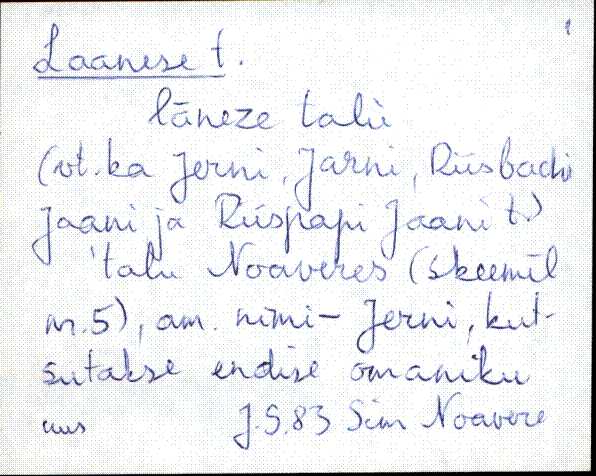 1
Laanese t.
lāneze talu
(vt. ka Jerni, Jarni, Riisbachi
Jaani ja Riispapi Jaani t.)
'talu Noaveres (skeemil
nr. 5), am. nimi - Jerni, kut-
sutakse endise omaniku
J.S.83 Sim Noavere